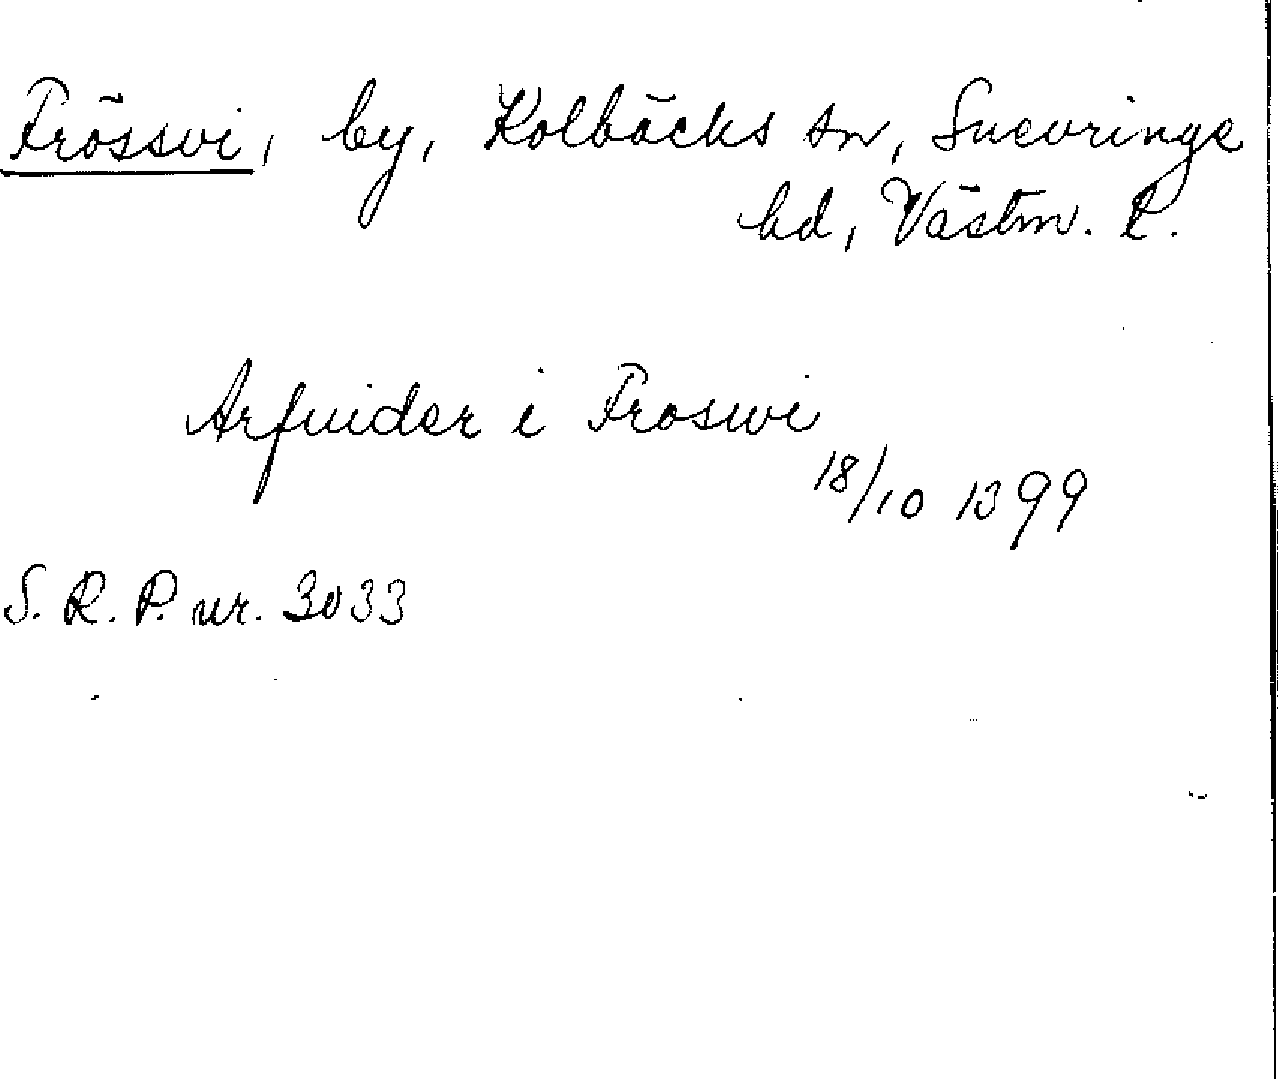 Frössvi, by, Kolbäcks sn, Snevringe
hd, Västm. l.
Arfuider i Froswi
18/10 1399
S. R. P. nr. 3033